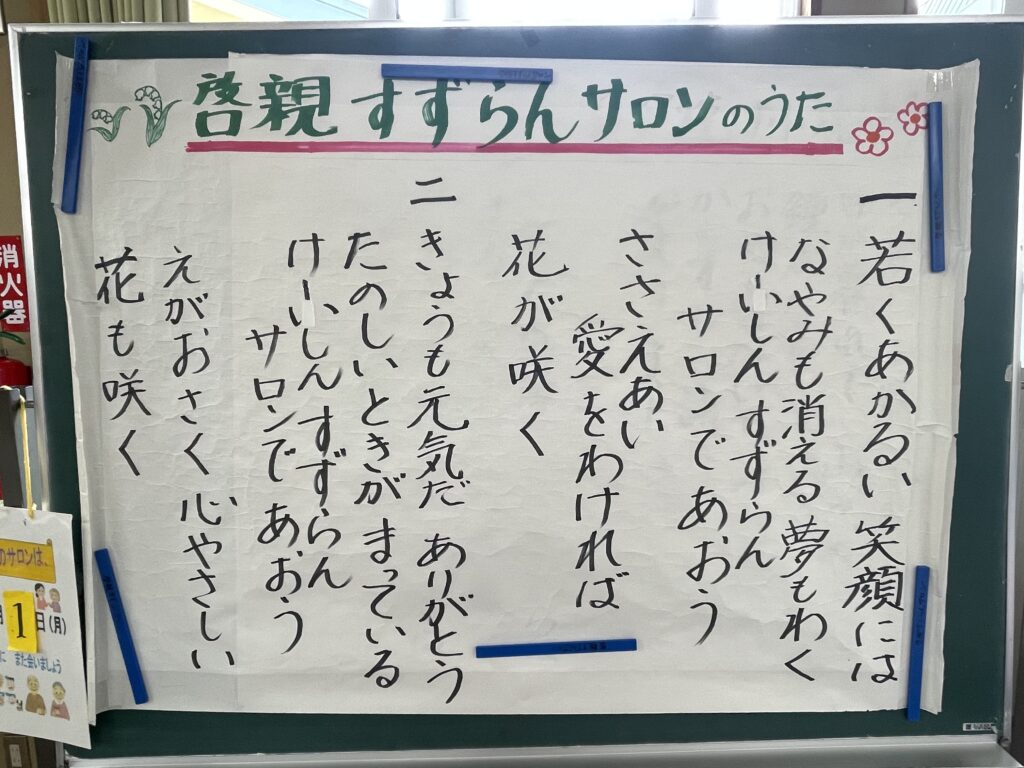 啓親 すずらんサロンのうた
一 若くあかるい 笑顔には
なやみも消える 夢もわく
けーいしん すずらん
サロンで あおう
ささえあい
愛をわければ
花が咲く
二 きょうも元気だ ありがとう
たのしいときが まっている
けーいしん すずらん
サロンで あおう
えがおさく 心やさしい
花も咲く
消火器
のサロンは、
月1日(月)
に また会いましょう